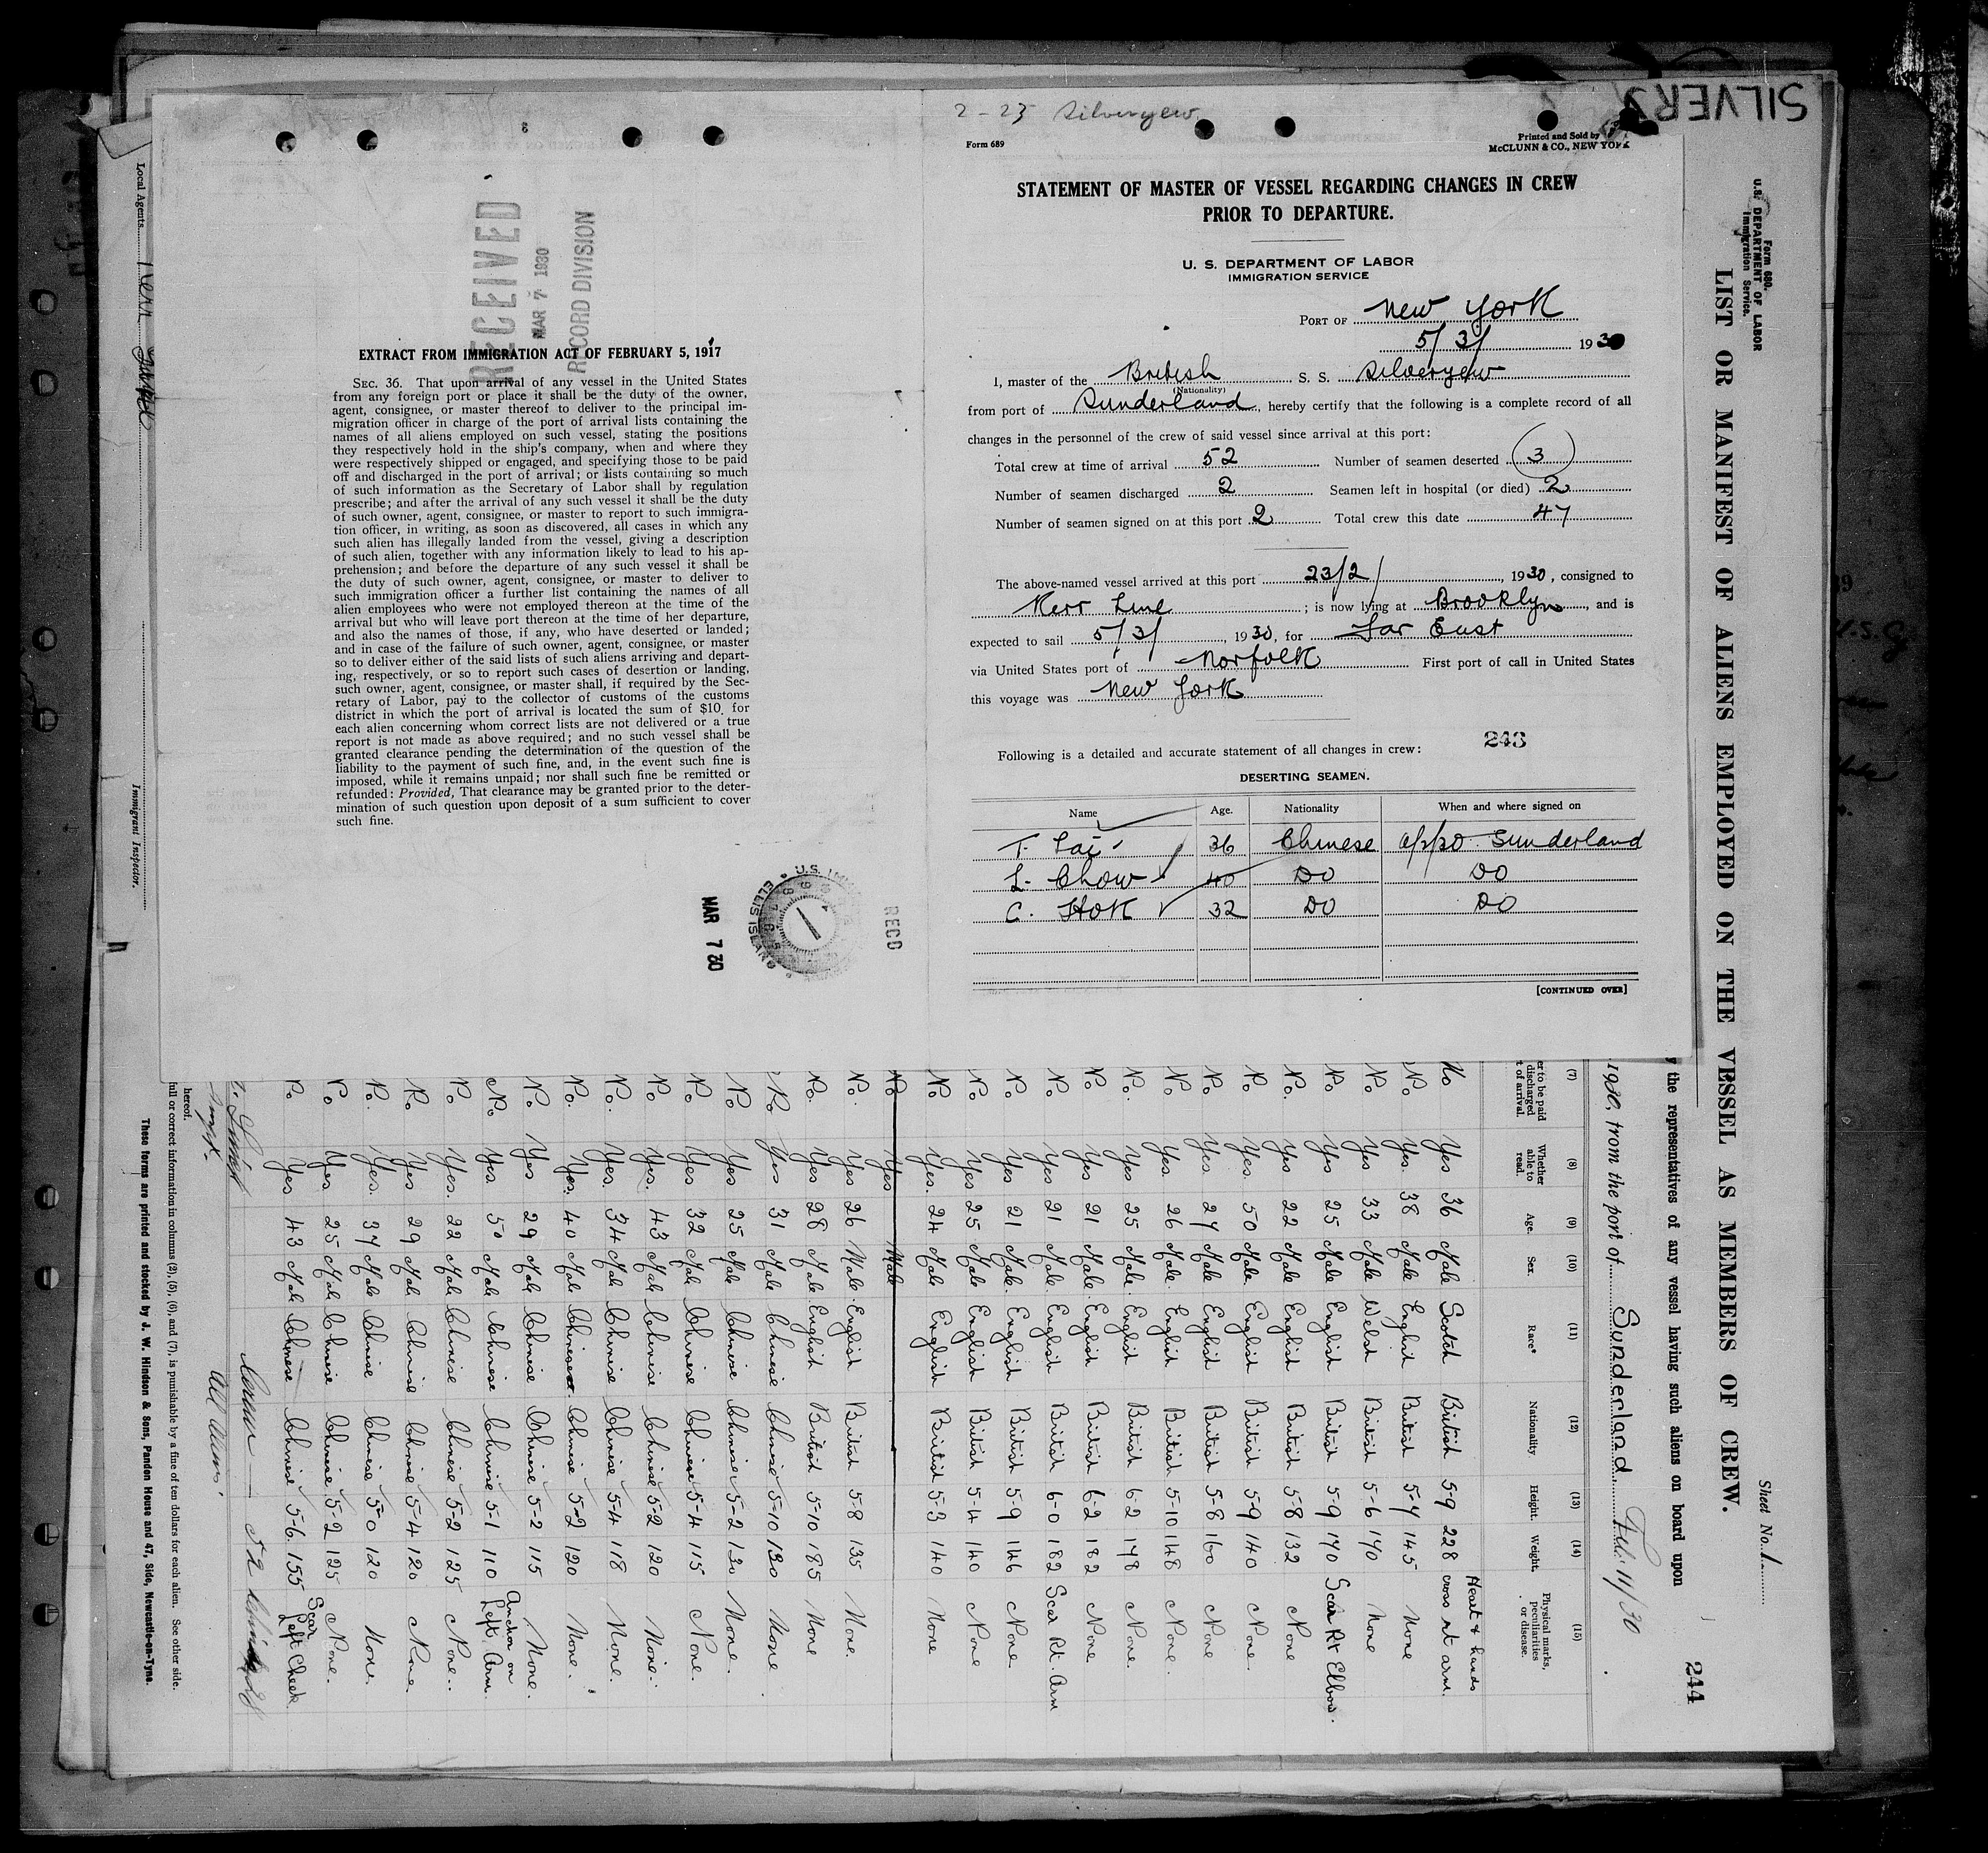 2-23 Silveryew
Form 689
Printed and Sold by
McCLUNN & CO., NEW YORK
STATEMENT OF MASTER OF VESSEL REGARDING CHANGES IN CREW
PRIOR TO DEPARTURE.
U. S. DEPARTMENT OF LABOR
IMMIGRATION SERVICE
PORT OF New York
5/3/ 1930
I, master of the British S. S. Silveryew
(Nationality)
from port of Sunderland, hereby certify that the following is a complete record of all
changes in the personnel of the crew of said vessel since arrival at this port:
Total crew at time of arrival 52 Number of seamen deserted 3
Number of seamen discharged 2 Seamen left in hospital (or died) 2
Number of seamen signed on at this port 2 Total crew this date 47
The above-named vessel arrived at this port 23/2/, 1930, consigned to
Kerr Line; is now lying at Brooklyn, and is
expected to sail 5/3/, 1930, for Far East
via United States port of Norfolk First port of call in United States
this voyage was New York
243
Following is a detailed and accurate statement of all changes in crew:
DESERTING SEAMEN.
Name Age. Nationality When and where signed on
T. Lai 36 Chinese Sunderland
L. Chow 40 DO DO
C. Hok 32 DO DO
[CONTINUED OVER]
3
RECEIVED
MAR 7 1930
RECORD DIVISION
EXTRACT FROM IMMIGRATION ACT OF FEBRUARY 5, 1917
SEC. 36. That upon arrival of any vessel in the United States
from any foreign port or place it shall be the duty of the owner,
agent, consignee, or master thereof to deliver to the principal im-
migration officer in charge of the port of arrival lists containing the
names of all aliens employed on such vessel, stating the positions
they respectively hold in the ship's company, when and where they
were respectively shipped or engaged, and specifying those to be paid
off and discharged in the port of arrival; or lists containing so much
of such information as the Secretary of Labor shall by regulation
prescribe; and after the arrival of any such vessel it shall be the duty
of such owner, agent, consignee, or master to report to such immigra-
tion officer, in writing, as soon as discovered, all cases in which any
such alien has illegally landed from the vessel, giving a description
of such alien, together with any information likely to lead to his ap-
prehension; and before the departure of any such vessel it shall be
the duty of such owner, agent, consignee, or master to deliver to
such immigration officer a further list containing the names of all
alien employees who were not employed thereon at the time of the
arrival but who will leave port thereon at the time of her departure,
and also the names of those, if any, who have deserted or landed;
and in case of the failure of such owner, agent, consignee, or master
so to deliver either of the said lists of such aliens arriving and depart-
ing, respectively, or so to report such cases of desertion or landing,
such owner, agent, consignee, or master shall, if required by the Sec-
retary of Labor, pay to the collector of customs of the customs
district in which the port of arrival is located the sum of $10 for
each alien concerning whom correct lists are not delivered or a true
report is not made as above required; and no such vessel shall be
granted clearance pending the determination of the question of the
liability to the payment of such fine, and, in the event such fine is
imposed, while it remains unpaid; nor shall such fine be remitted or
refunded: Provided, That clearance may be granted prior to the deter-
mination of such question upon deposit of a sum sufficient to cover
such fine.
MAR 7 30
ELLIS ISLAND
RECD
SILVERY
Form 680.
U.S. DEPARTMENT OF LABOR
Immigration Service.
LIST OR MANIFEST OF ALIENS EMPLOYED ON THE VESSEL AS MEMBERS OF CREW.
Sheet No. 1
the representatives of any vessel having such aliens on board upon
244
1930, from the port of Sunderland Feb. 11/30
(7) (8) (9) (10) (11) (12) (13) (14) (15)
er to be paid
discharged
t of arrival.
Whether
able to
read.
Age.
Sex.
Race*
Nationality.
Height.
Weight.
Physical marks,
peculiarities
or disease.
No Yes 36 Male Scotch British 5-9 228 Heart & hands cross rt arm.
No. Yes. 38 Male English British 5-7 145 None
No Yes 33 Male Welsh British 5-6 140 None
No Yes 25 Male English British 5-9 170 Scar Rt Elbow.
No. Yes 22 Male English British 5-8 132 None
No Yes. 50 Male English British 5-9 140 None.
No Yes. 27 Male English British 5-8 160 None
No Yes. 26 Male English British 5-10 148 None.
No. Yes 25 Male English British 6-2 178 None.
No Yes 21 Male English British 6-2 182 None
No Yes 21 Male English British 6-0 182 Scar Rt. Arm
No. Yes 21 Male English British 5-9 146 None
No Yes 25 Male English British 5-4 140 None
No Yes. 24 Male English British 5-3 140 None
No Yes Male
No. Yes 26 Male English British 5-8 135 None.
No. Yes 28 Male English British 5-10 185 None
No. Yes 31 Male Chinese Chinese 5-10 130 None
No Yes 25 Male Chinese Chinese 5-2 130 None.
No Yes 32 Male Chinese Chinese 5-4 115 None.
No Yes. 43 Male Chinese Chinese 5-2 120 None.
No. Yes. 34 Male Chinese Chinese 5-4 118 None.
No. Yes. 40 Male Chinese Chinese 5-2 120 None.
No Yes 29 Male Chinese Chinese 5-2 115 None.
No. Yes. 50 Male Chinese Chinese 5-1 110 Anchor on Left Arm.
No Yes. 22 Male Chinese Chinese 5-2 125 None.
No. Yes 29 Male Chinese Chinese 5-4 120 None.
No. Yes. 37 Male Chinese Chinese 5-0 120 None.
No Yes. 25 Male Chinese Chinese 5-2 125 None.
No. Yes 43 Male Chinese Chinese 5-6 155 Scar Left Cheek
52
hereof.
full or correct information in columns (2), (5), (6), and (7), is punishable by a fine of ten dollars for each alien. See other side.
These forms are printed and stocked by J. W. Hindson & Sons, Panden House and 47, Side, Newcastle-on-Tyne.
Local Agents Kerr
Immigrant Inspector.